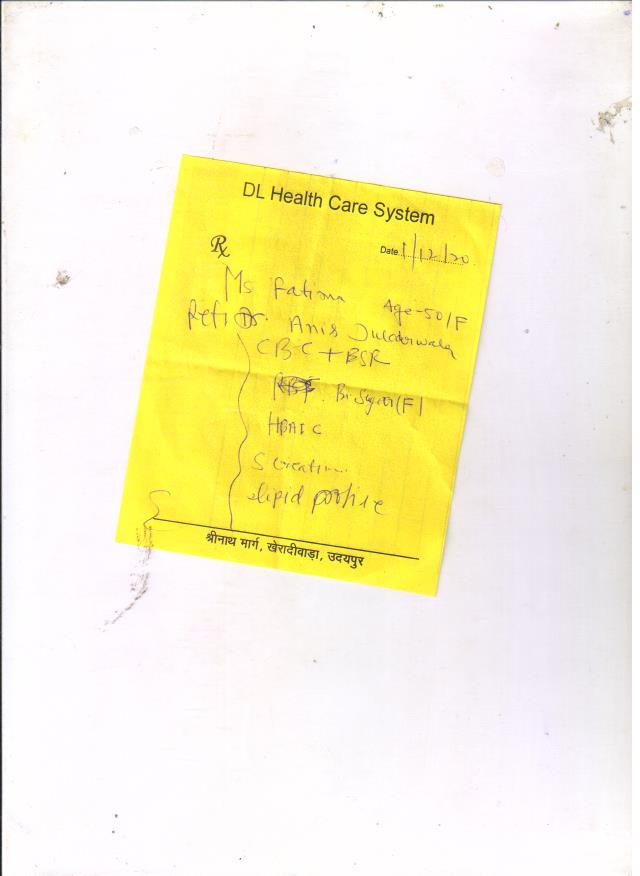 DL Health Care System
Rx
Date 1/12/20
Ms Fatima Age-50/F
Ref: Dr. Anis
CBC + BSR
B. Sugar (F)
HBA1C
S Creatini
lipid profile
श्रीनाथ मार्ग, खेरादीवाड़ा, उदयपुर